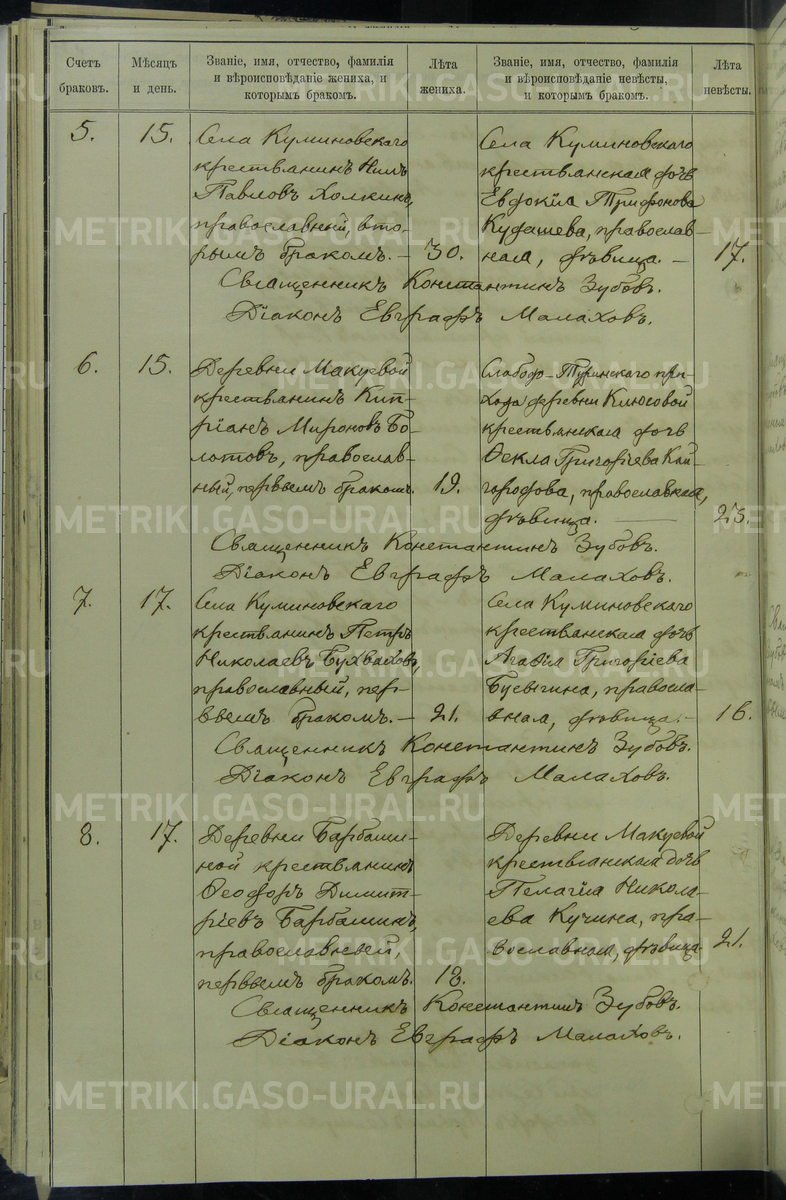 Счетъ браковъ.
Мѣсяцъ и день.
Званіе, имя, отчество, фамилія и вѣроисповѣданіе жениха, и которымъ бракомъ.
Лѣта жениха.
Званіе, имя, отчество, фамилія и вѣроисповѣданіе невѣсты, и которымъ бракомъ.
Лѣта невѣсты.
5.
15.
Села Куминовскаго
крестьянинъ Нилъ
Павловъ Холкинъ,
православный, вто-
рымъ бракомъ. –
30.
Села Куминовскаго
крестьянская дочь
Евдокія Трифонова
Кудашева, православ-
ная, дѣвица. –
17.
Священникъ Константинъ Зубовъ.
Діаконъ Евграфъ Малаховъ.
6.
15.
Деревни Макуевой
крестьянинъ Кип-
ріанъ Мироновъ Бо-
лотовъ, православ-
ный, первымъ бракомъ.
19.
Слободо-Туринскаго при-
хода деревни Клюсовой
крестьянская дочь
Ѳекла Григоріева Кай-
городова, православная,
дѣвица.
23.
Священникъ Константинъ Зубовъ.
Діаконъ Евграфъ Малаховъ.
7.
17.
Села Куминовскаго
крестьянинъ Петръ
Николаевъ Бухваловъ,
православный, пер-
вымъ бракомъ. –
21.
Села Куминовскаго
крестьянская дочь
Агафія Григоріева
Бусыгина, правосла-
вная, дѣвица. –
16.
Священникъ Константинъ Зубовъ.
Діаконъ Евграфъ Малаховъ.
8.
17.
Деревни Барбаши-
ной крестьянинъ
Ѳеодоръ Димит-
ріевъ Барбашинъ,
православный,
первымъ бракомъ.
18.
Деревни Макуевой
крестьянская дочь
Пелагія Никола-
ева Кучина, пра-
вославная, дѣвица
21.
Священникъ Константинъ Зубовъ.
Діаконъ Евграфъ Малаховъ.
METRIKI.GASO-URAL.RU